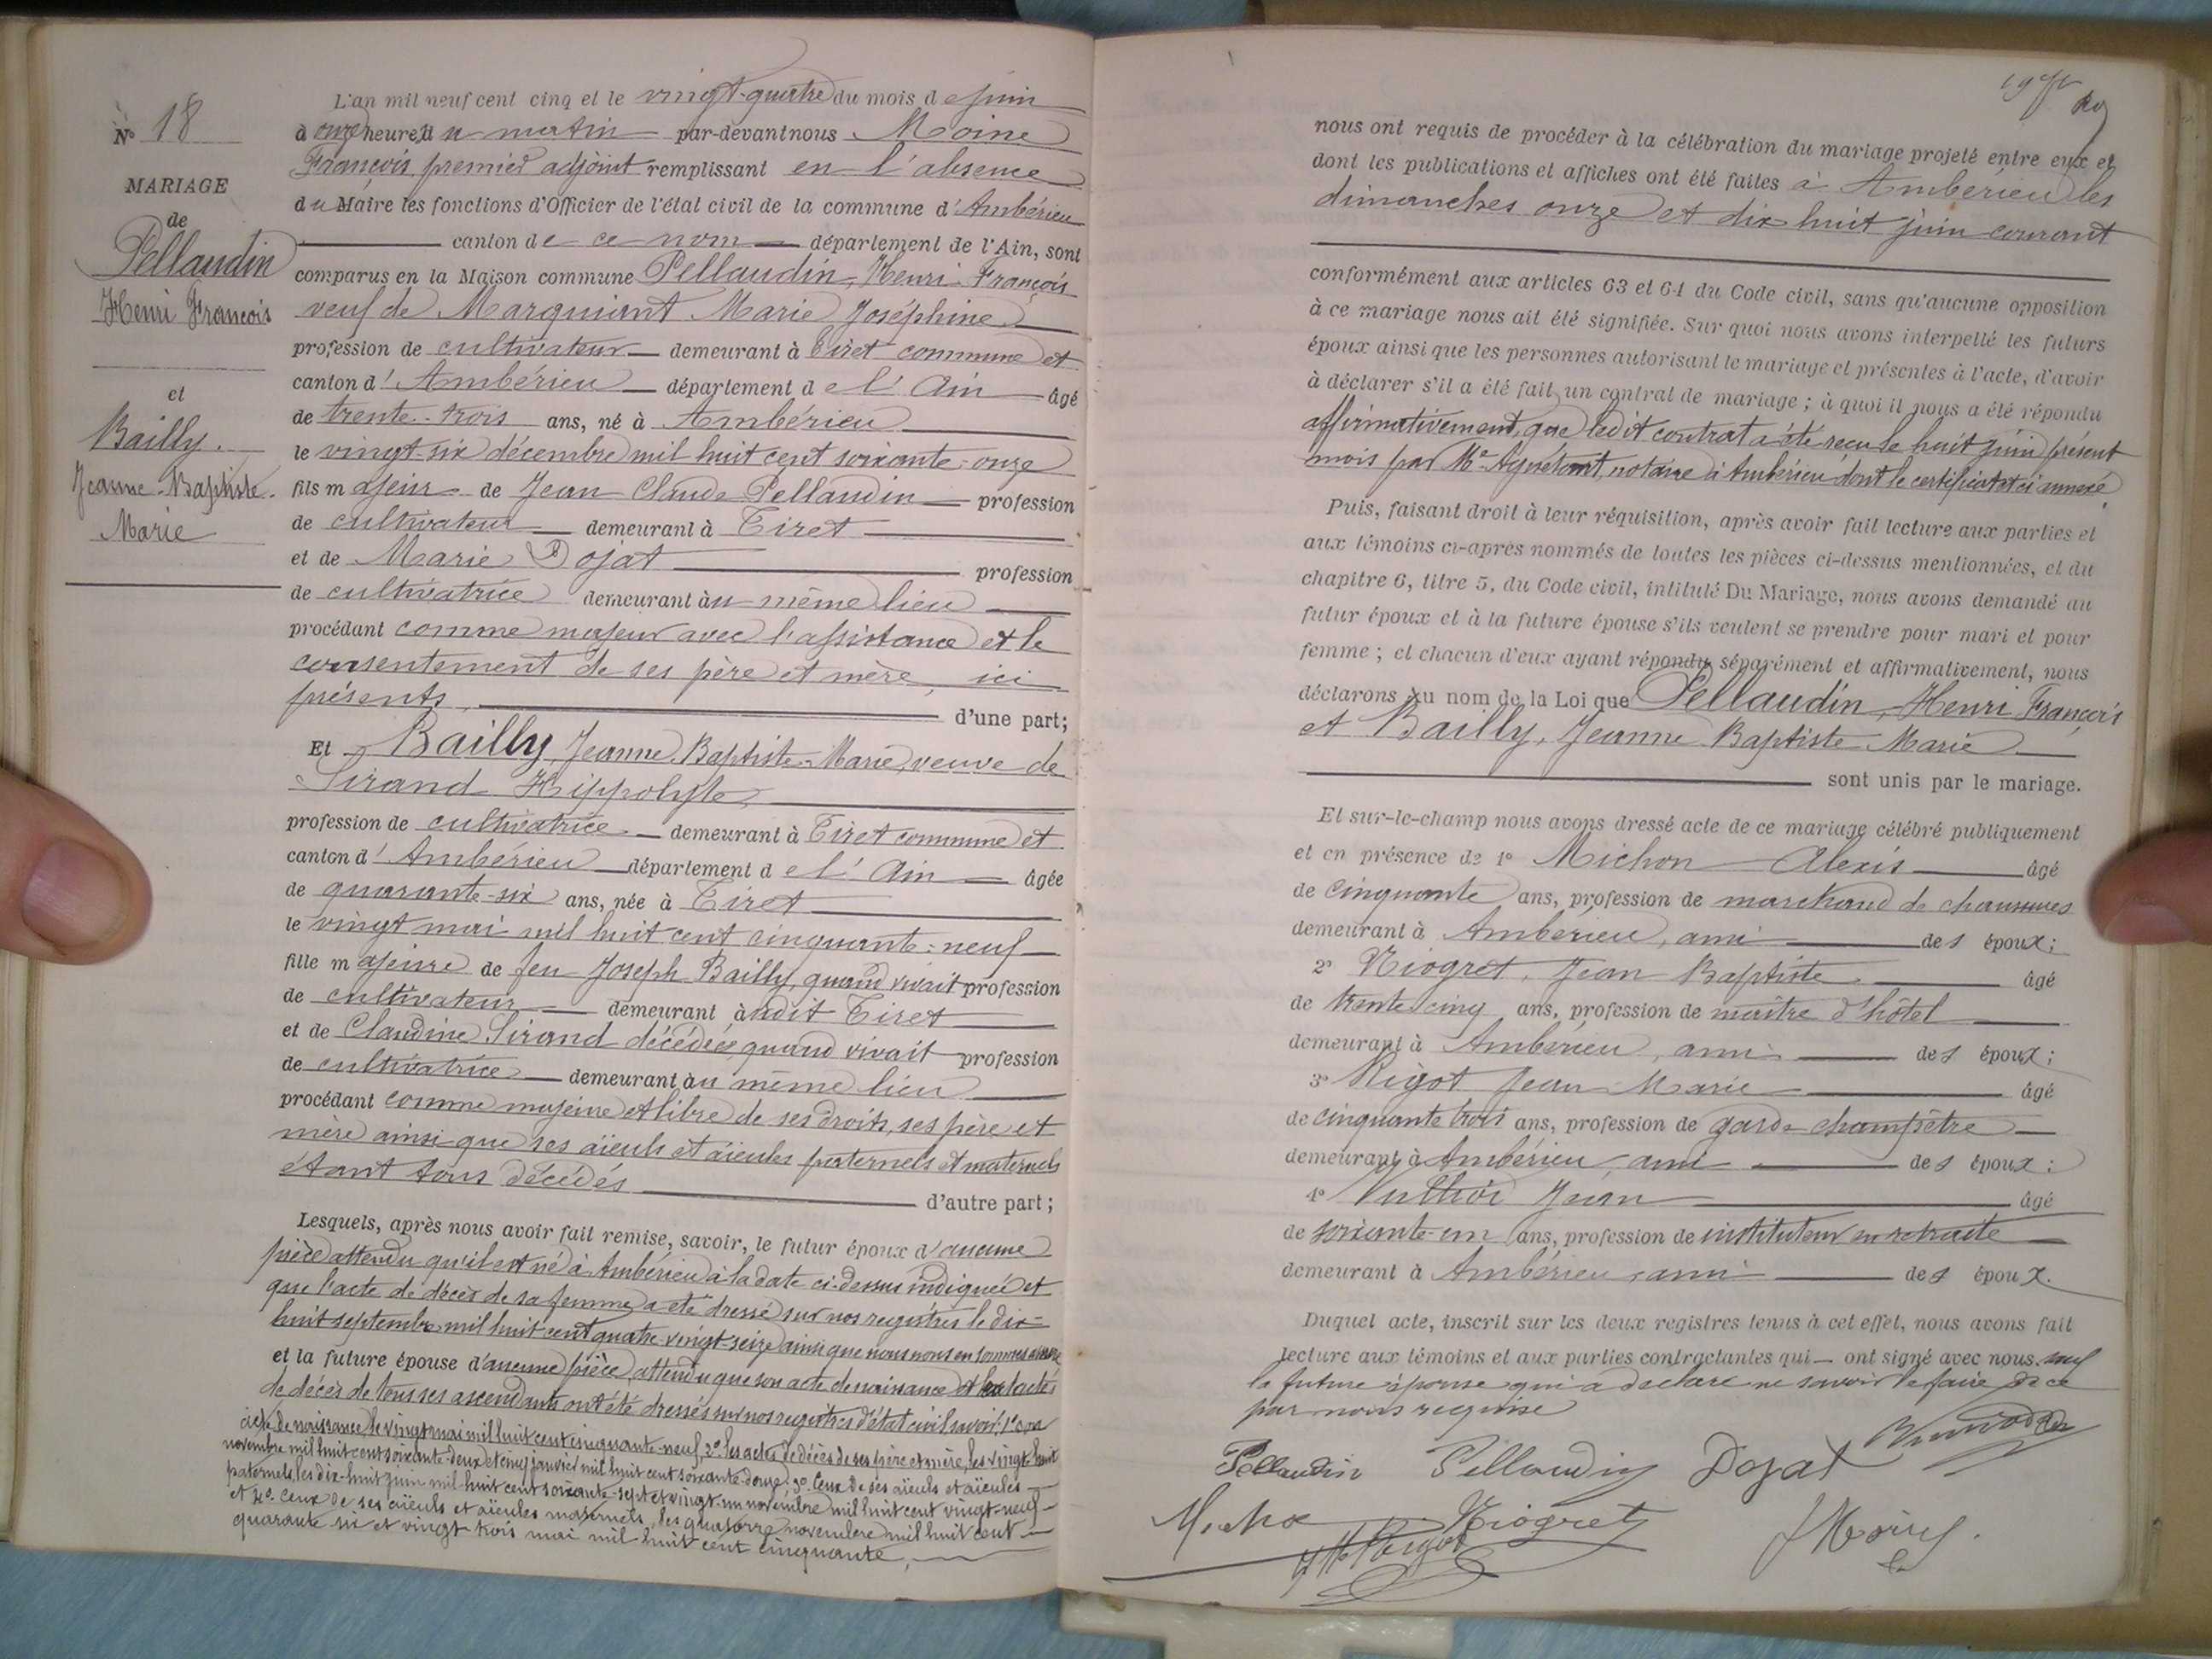 N° 18
MARIAGE
de
Pellaudin
Henri François
et
Bailly
Jeanne-Baptiste-
Marie
L'an mil neuf cent cinq et le vingt-quatre du mois de juin
à onze heures du matin par-devant nous Moine
François premier adjoint remplissant en l'absence
du Maire les fonctions d'Officier de l'état civil de la commune d'Ambérieu
canton de ce nom département de l'Ain, sont
comparus en la Maison commune Pellaudin, Henri-François
veuf de Marguinant Marie Joséphine
profession de cultivateur demeurant à Tiret commune et
canton d'Ambérieu département de l'Ain âgé
de trente-trois ans, né à Ambérieu
le vingt-six décembre mil huit cent soixante-onze
fils majeur de Jean Claude Pellaudin profession
de cultivateur demeurant à Tiret
et de Marie Dojat profession
de cultivatrice demeurant au même lieu
procédant comme majeur avec l'assistance et le
consentement de ses père et mère, ici
présents, d'une part;
Et Bailly, Jeanne-Baptiste-Marie, veuve de
Sirand Hippolyte
profession de cultivatrice demeurant à Tiret commune et
canton d'Ambérieu département de l'Ain âgée
de quarante-six ans, née à Tiret
le vingt mai mil huit cent cinquante-neuf
fille majeure de feu Joseph Bailly, quand vivait profession
de cultivateur demeurant audit Tiret
et de Claudine Sirand décédée, quand vivait profession
de cultivatrice demeurant au même lieu
procédant comme majeure et libre de ses droits, ses père et
mère ainsi que ses aïeuls et aïeules paternels et maternels
étant tous décédés d'autre part;
Lesquels, après nous avoir fait remise, savoir, le futur époux d'aucune
pièce attendu qu'il est né à Ambérieu à la date ci-dessus indiquée et
que l'acte de décès de sa femme a été dressé sur nos registres le dix-
huit septembre mil huit cent quatre-vingt-seize ainsi que nous nous en sommes assuré
et la future épouse d'aucune pièce attendu que son acte de naissance et les actes
de décès de tous ses ascendants ont été dressés sur nos registres d'état civil savoir: 1° son
acte de naissance, le vingt mai mil huit cent cinquante-neuf, 2° les actes de décès de ses père et mère, les vingt-huit
novembre mil huit cent soixante-deux et cinq janvier mil huit cent soixante-douze; 3° Ceux de ses aïeuls et aïeules
paternels, les dix-huit juin mil huit cent soixante-sept et vingt-un novembre mil huit cent vingt-neuf
et 4° Ceux de ses aïeuls et aïeules maternels, les quatorze novembre mil huit cent
quarante-six et vingt-trois mai mil huit cent cinquante,
nous ont requis de procéder à la célébration du mariage projeté entre eux et
dont les publications et affiches ont été faites à Ambérieu les
dimanches onze et dix huit juin courant
conformément aux articles 63 et 64 du Code civil, sans qu'aucune opposition
à ce mariage nous ait été signifiée. Sur quoi nous avons interpellé les futurs
époux ainsi que les personnes autorisant le mariage et présentes à l'acte, d'avoir
à déclarer s'il a été fait un contrat de mariage; à quoi il nous a été répondu
affirmativement, que ledit contrat a été reçu le huit juin présent
mois par Me notaire à Ambérieu dont le certificat est ci annexé
Puis, faisant droit à leur réquisition, après avoir fait lecture aux parties et
aux témoins ci-après nommés de toutes les pièces ci-dessus mentionnées, et du
chapitre 6, titre 5, du Code civil, intitulé Du Mariage, nous avons demandé au
futur époux et à la future épouse s'ils veulent se prendre pour mari et pour
femme; et chacun d'eux ayant répondu séparément et affirmativement, nous
déclarons au nom de la Loi que Pellaudin, Henri François
et Bailly, Jeanne Baptiste Marie
sont unis par le mariage.
Et sur-le-champ nous avons dressé acte de ce mariage célébré publiquement
et en présence de 1° Michon Alexis âgé
de cinquante ans, profession de marchand de chaussures
demeurant à Ambérieu, ami des époux;
2° Niogret, Jean Baptiste âgé
de trente cinq ans, profession de maître d'hôtel
demeurant à Ambérieu, ami des époux;
3° Rigot Jean Marie âgé
de cinquante trois ans, profession de garde champêtre
demeurant à Ambérieu, ami des époux;
4° Jean âgé
de soixante-un ans, profession de instituteur en retraite
demeurant à Ambérieu, ami des époux.
Duquel acte, inscrit sur les deux registres tenus à cet effet, nous avons fait
lecture aux témoins et aux parties contractantes qui ont signé avec nous. sauf
la future épouse qui a déclaré ne savoir le faire de ce
par nous requise
Pellaudin Pellaudin Dojat
Michon Niogret